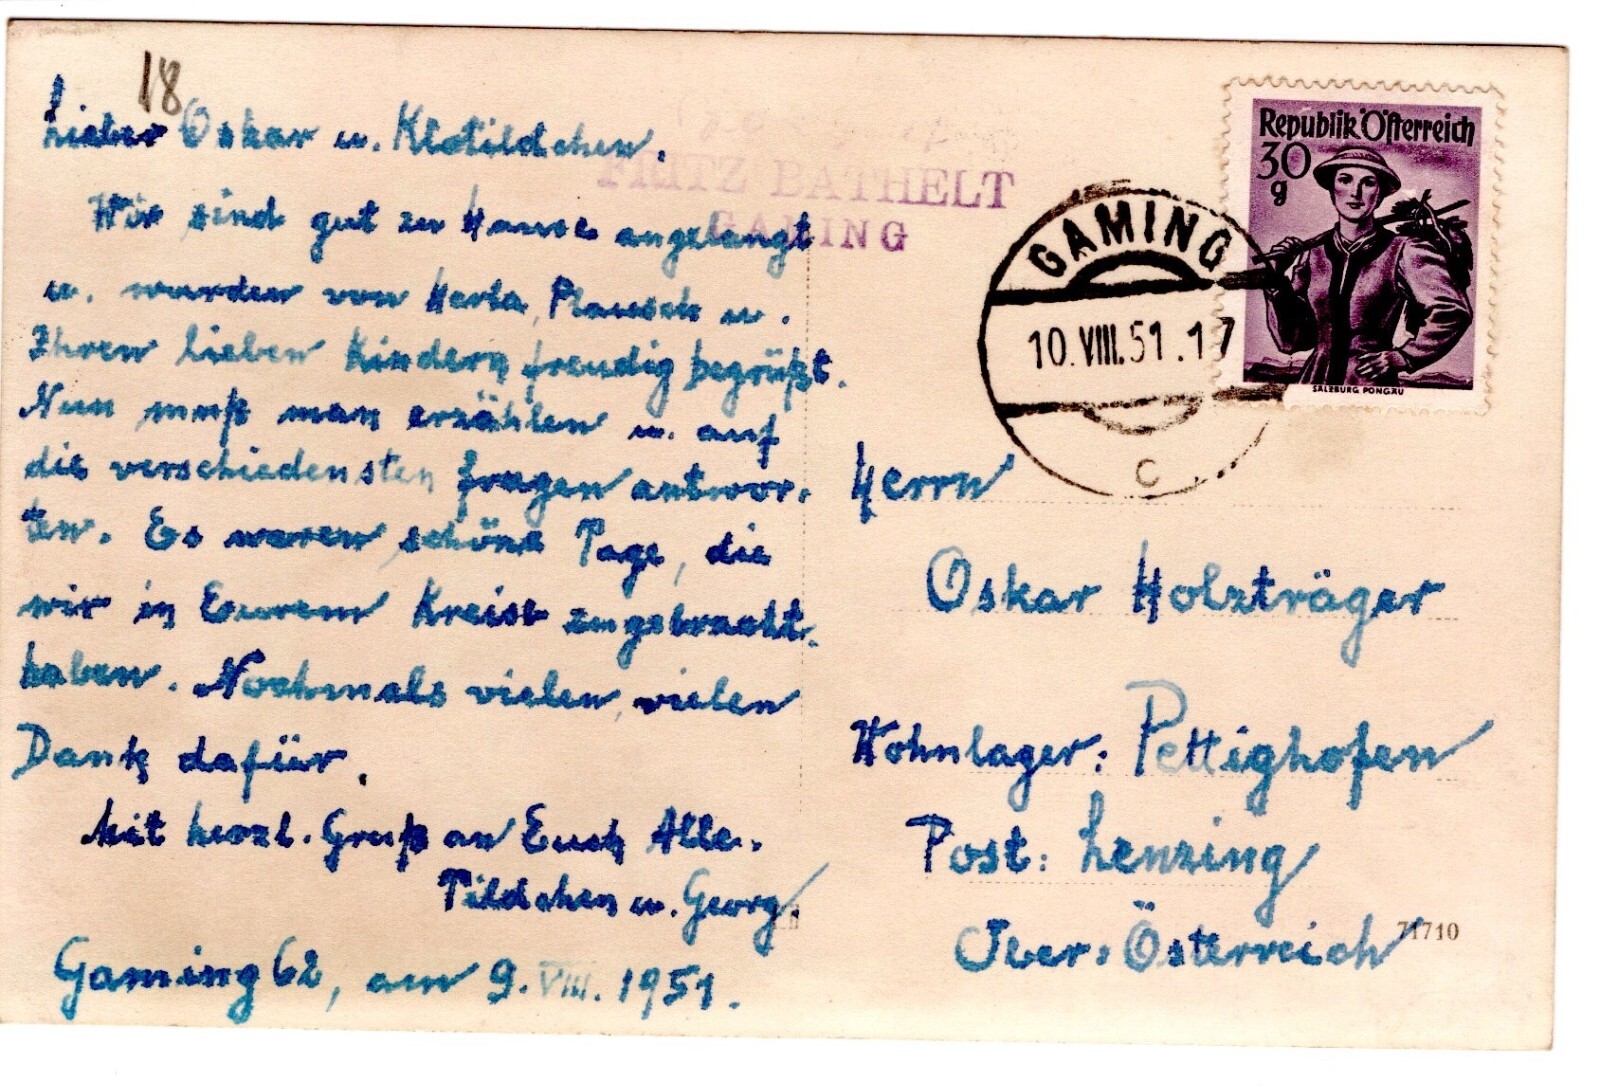 18
Lieber Oskar u. Klotildchen.
Wir sind gut zu Hause angelangt
u. wurden von Herta, Plausch u.
Ihren lieben Kindern freudig begrüßt.
Nun muß man erzählen u. auf
die verschiedensten fragen antwor-
ten. Es waren schöne Tage, die
wir in Eurem Kreise zugebracht
haben. Nochmals vielen, vielen
Dank dafür.
Mit herzl. Gruß an Euch Alle.
Tildchen u. Georg.
Gaming 62, am 9. VIII. 1951.
FRITZ BATHELT
GAMING
GAMING
10.VIII.51.17
C
Republik Österreich
30
g
SALZBURG PONGAU
Herrn
Oskar Holzträger
Wohnlager: Pettighofen
Post: Lenzing
Ober-Österreich
71710